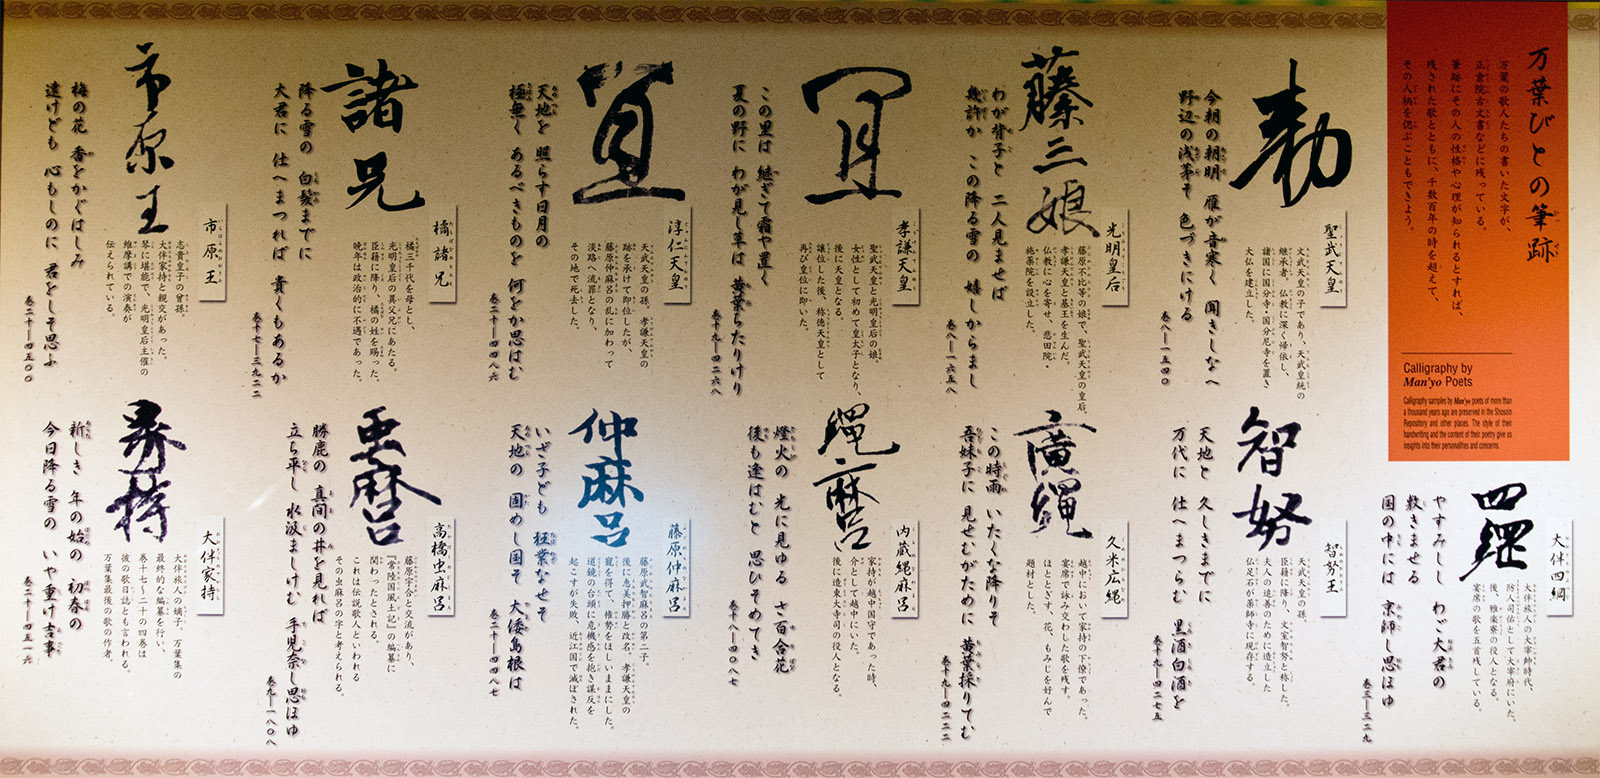 万葉びとの筆跡
万葉の歌人たちの書いた文字が、
正倉院古文書などに残っている。
筆跡にその人の性格や心理が知られるとすれば、
残された歌とともに、千数百年の時を超えて、
その人柄を偲ぶこともできよう。
Calligraphy by
Man'yo Poets
Calligraphy samples by Man'yo poets of more than
a thousand years ago are preserved in the Shosoin
Repository and other places. The style of their
handwriting and the content of their poetry give us
insights into their personalities and concerns.
勅
聖武天皇
文武天皇の子であり、天武皇統の
継承者。仏教に深く帰依し、
諸国に国分寺・国分尼寺を置き
大仏を建立した。
今朝の朝明 雁が音寒く 聞きしなへ
野辺の浅茅そ 色づきにける
巻八―一五四〇
藤三娘
光明皇后
藤原不比等の娘で、聖武天皇の皇后。
孝謙天皇と基王を生んだ。
仏教に心を寄せ、悲田院・
施薬院を設立した。
わが背子と 二人見ませば
幾許か この降る雪の 嬉しからまし
巻八―一六五八
孝謙天皇
聖武天皇と光明皇后の娘。
女性として初めて皇太子となり、
後に天皇となる。
譲位した後、称徳天皇として
再び皇位に即いた。
この里は 継ぎて霜や置く
夏の野に わが見し草は 黄葉ちたりけり
巻十九―四二六八
淳仁天皇
天武天皇の孫。孝謙天皇の
跡を承けて即位したが、
藤原仲麻呂の乱に加わって
淡路へ流罪となり、
その地で死去した。
天地を 照らす日月の
極無く あるべきものを 何をか思はむ
巻二十―四四八六
諸兄
橘諸兄
橘三千代を母とし、
光明皇后の異父兄にあたる。
臣籍に降り、橘の姓を賜った。
晩年は政治的に不遇であった。
降る雪の 白髪までに
大君に 仕へまつれば 貴くもあるか
巻十七―三九二二
市原王
市原王
志貴皇子の曾孫。
大伴家持と親交があった。
琴に堪能で、光明皇后主催の
維摩講での演奏が
伝えられている。
梅の花 香をかぐはしみ
遠けども 心もしのに 君をしそ思ふ
巻二十―四五〇〇
四綱
大伴四綱
大伴旅人の大宰帥時代、
防人司佑として大宰府にいた。
後、雅楽寮の役人となる。
宴席の歌を五首残している。
やすみしし わご大君の
敷きませる
国の中には 京師し思ほゆ
巻三―三二九
智努
智努王
天武天皇の孫。
臣籍に降り、文室智努と称した
夫人の追善のために造立した
仏足石が薬師寺に現存する。
天地と 久しきまでに
万代に 仕へまつらむ 黒酒白酒を
巻十九―四二七五
廣縄
久米広縄
越中において家持の下僚であった。
宴席で詠み交わした歌を残す。
ほととぎす、花、もみじを好んで
題材とした。
この時雨 いたくな降りそ
吾妹子に 見せむがために 黄葉採りてむ
巻十九―四二二二
縄麿
内蔵縄麻呂
家持が越中国守であった時、
介として越中にいた。
後に造東大寺司の役人となる。
燈火の 光に見ゆる さ百合花
後も逢はむと 思ひそめてき
巻十八―四〇八七
仲麻呂
藤原仲麻呂
藤原武智麻呂の第二子。
後に恵美押勝と改名。孝謙天皇の
寵を得て、権勢をほしいままにした。
道鏡の台頭に危機感を抱き謀反を
起こすが失敗、近江国で滅ぼされた。
いざ子ども 狂業なせそ
天地の 固めし国そ 大倭島根は
巻二十―四四八七
虫麿
高橋虫麻呂
藤原宇合と交流があり、
『常陸国風土記』の編纂に
関わったとされる。
これは伝説歌人といわれる
その虫麻呂の字と考えられる。
勝鹿の 真間の井を見れば
立ち平し 水汲ましけむ 手児奈し思ほゆ
巻九―一八〇八
家持
大伴家持
大伴旅人の嫡子。万葉集の
最終的な編纂を行い、
巻十七～二十の四巻は
彼の歌日誌とも言われる。
万葉集最後の歌の作者。
新しき 年の始の 初春の
今日降る雪の いや重け吉事
巻二十―四五一六